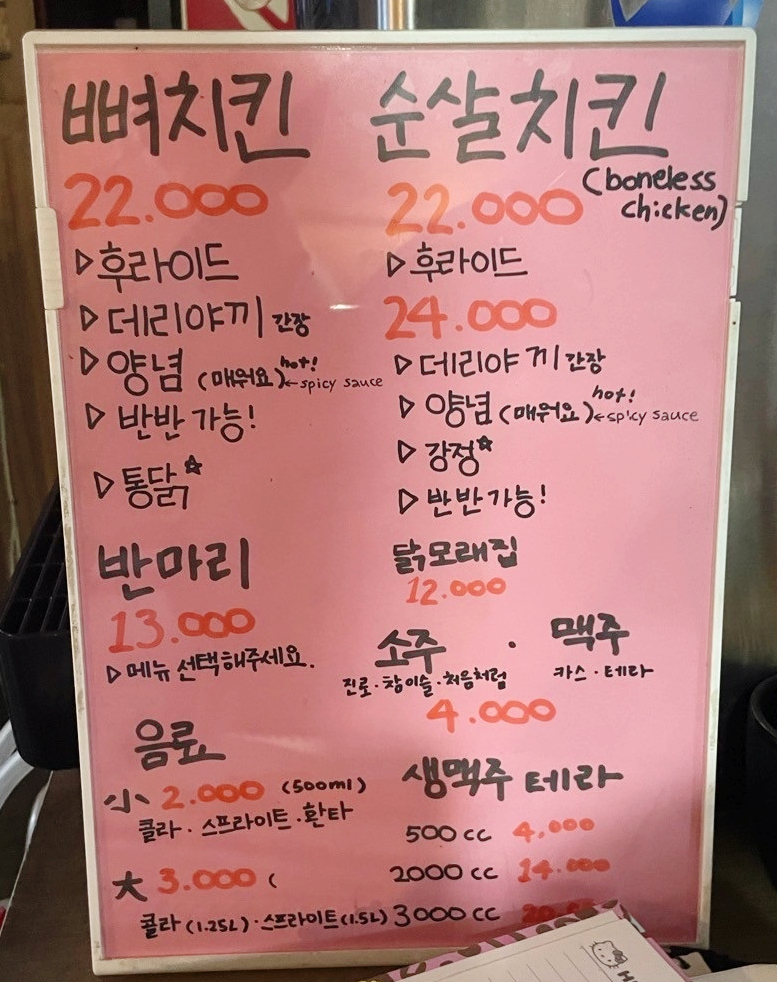 뼈치킨
22.000
▷후라이드
▷데리야끼 간장
▷양념 (매워요) hot! ←spicy sauce
▷반반 가능!
▷통닭☆
반마리
13.000
▷메뉴 선택해주세요.
음료
小 2.000 (500ml)
콜라 · 스프라이트 · 환타
大 3.000 (
콜라 (1.25L) · 스프라이트 (1.5L)
순살치킨
(boneless chicken)
22.000
▷후라이드
24.000
▷데리야끼 간장
▷양념 (매워요) hot! ←spicy sauce
▷강정☆
▷반반 가능!
닭모래집
12.000
소주 · 맥주
진로 · 참이슬 · 처음처럼 카스 · 테라
4.000
생맥주 테라
500 cc 4,000
2000 cc 14.000
3000 cc